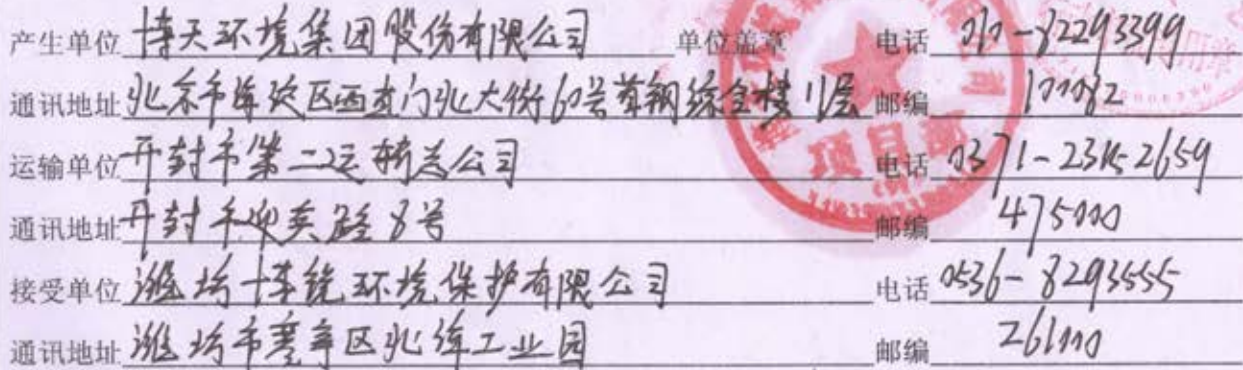 产生单位 博天环境集团股份有限公司 单位盖章 电话 010-82293399
通讯地址 北京市海淀区西直门北大街60号首钢综合楼11层 邮编 100082
运输单位 开封市第二运输总公司 电话 0371-23152659
通讯地址 开封市迎宾路8号 邮编 475000
接受单位 潍坊博锐环境保护有限公司 电话 0536-8293555
通讯地址 潍坊市寒亭区北海工业园 邮编 261100
项目部